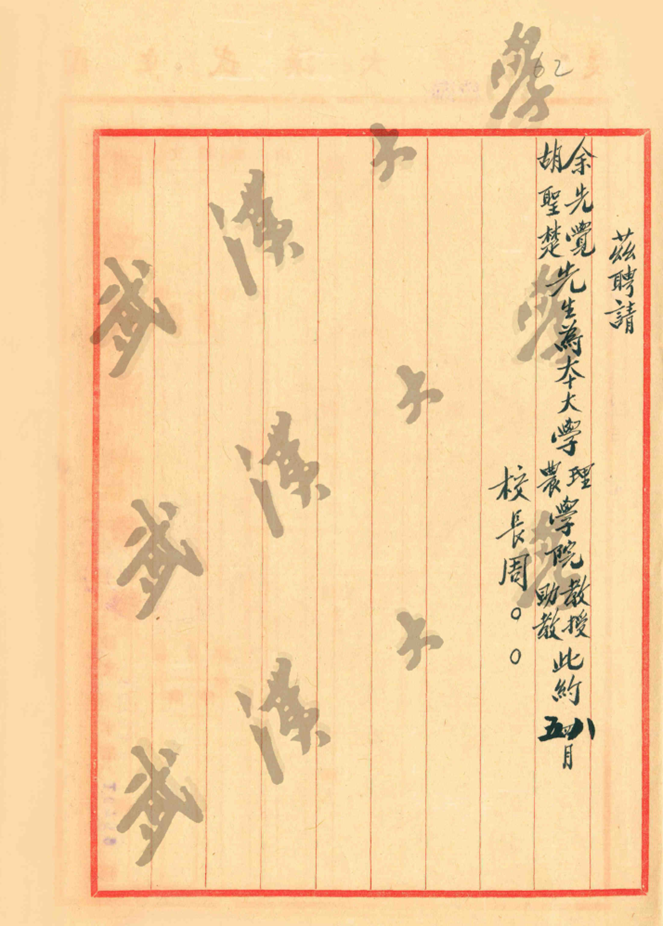 62
茲聘請
余先覺
胡聖楚
先生為本大學
理
農
學院
教授
助教
此約
八
五
月
校長周○○
武漢大學
武漢大學
武漢大學